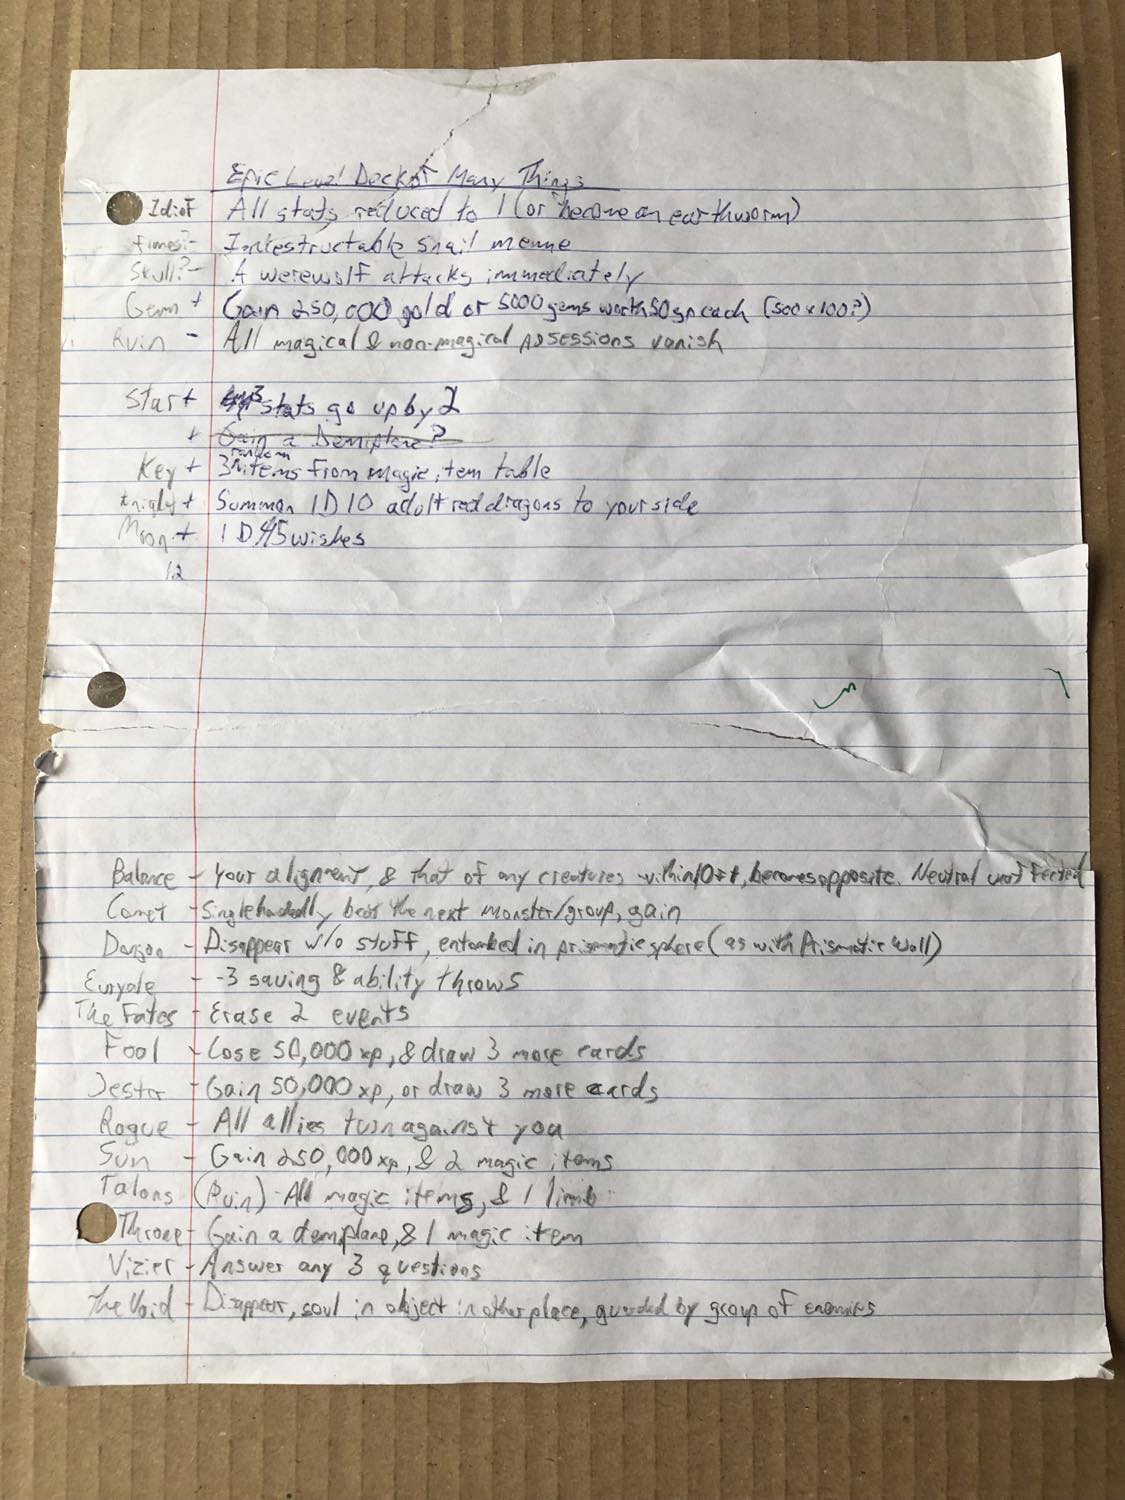 Epic Level Deck of Many Things
Idiot All stats reduced to 1 (or become an earthworm)
Indestructable snail
Skull? - A werewolf attacks immediately
Gem + Gain 250,000 gold or 5000 gems worth 50 gp each (500 x 100?)
Ruin - All magical & non-magical possessions vanish
Star + 3 stats go up by 2
+ Gain a Demiplane?
Key + 3 random items from magic item table
Knight + Summon 1D10 adult red dragons to your side
Moon + 1D 5 wishes
12
Balance - Your alignment, & that of any creatures within 10ft, becomes opposite. Neutral
Comet - Singlehandedly beat the next monster/group, gain
Disappear w/o stuff, entombed in prismatic sphere (as with Prismatic Wall)
Euryale - -3 saving & ability throws
The Fates - Erase 2 events
Fool - Lose 50,000 xp, & draw 3 more cards
Jester - Gain 50,000 xp, or draw 3 more cards
Rogue - All allies turn against you
Sun - Gain 250,000 xp, & 2 magic items
Talons (Ruin) - All magic items, & 1 limb
Throne - Gain a demiplane, & 1 magic item
Vizier - Answer any 3 questions
The Void - Disappear, soul in object in other place, guarded by group of enemies